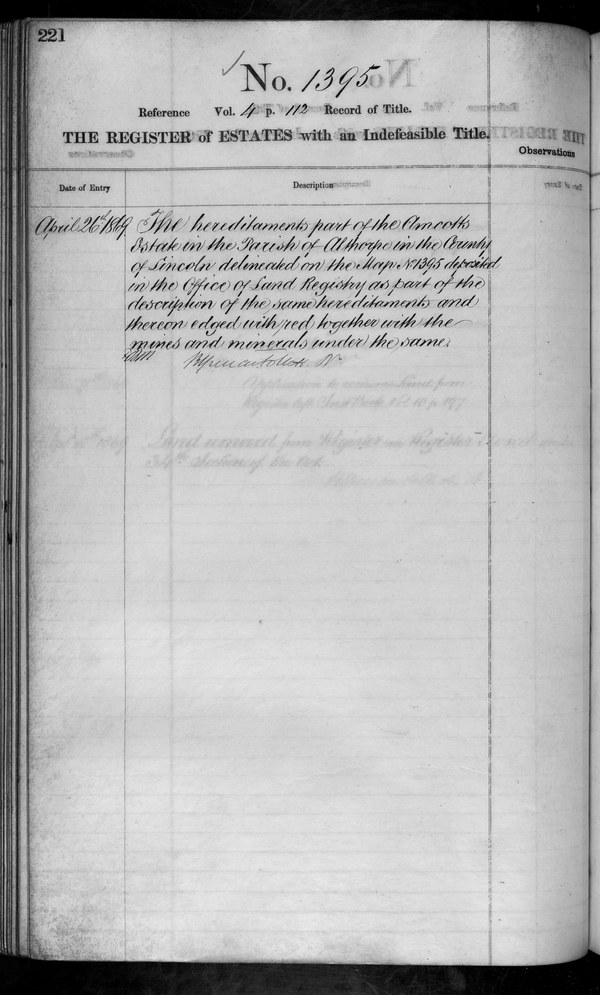 221
No. 1395
Reference Vol. 4 p. 112 Record of Title.
THE REGISTER of ESTATES with an Indefeasible Title.
Observations
Date of Entry
Description
April 26th 1869
The hereditaments part of the Amcotts
Estate in the Parish of Althorpe in the County
of Lincoln delineated on the Map No 1395 deposited
in the Office of Land Registry as part of the
description of the same hereditaments and
thereon edged with red together with the
mines and minerals under the same.